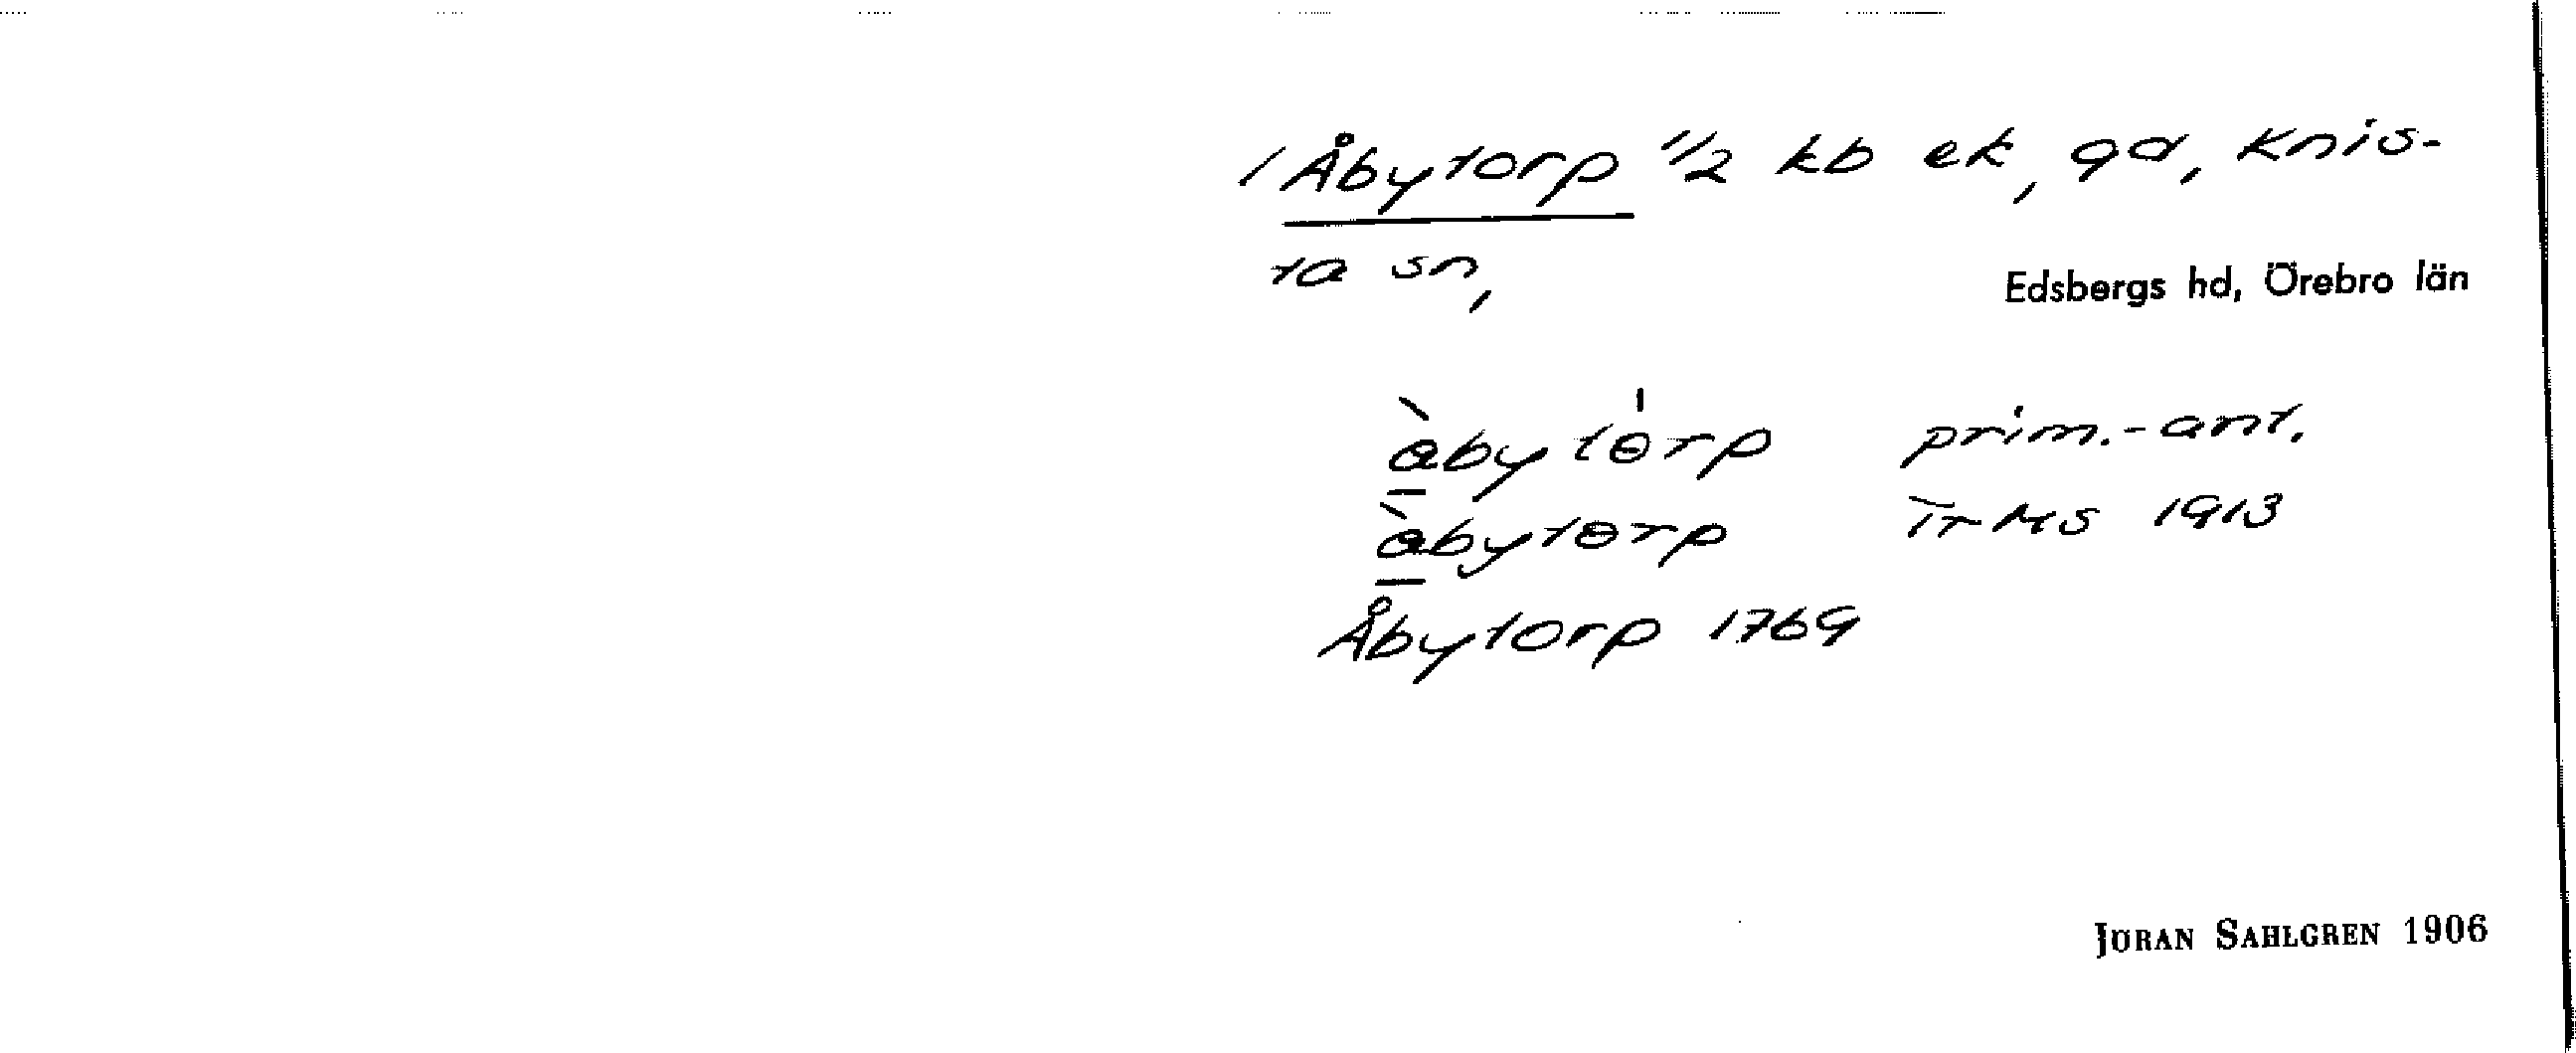 / Åbytorp 1/2 kb ek, gd, Knis-
ta sn,
Edsbergs hd, Örebro län
àbytɵ́rp prim.-ant.
àbytɵrp TrMS 1913
Åbytorp 1769
JÖRAN SAHLGREN 1906